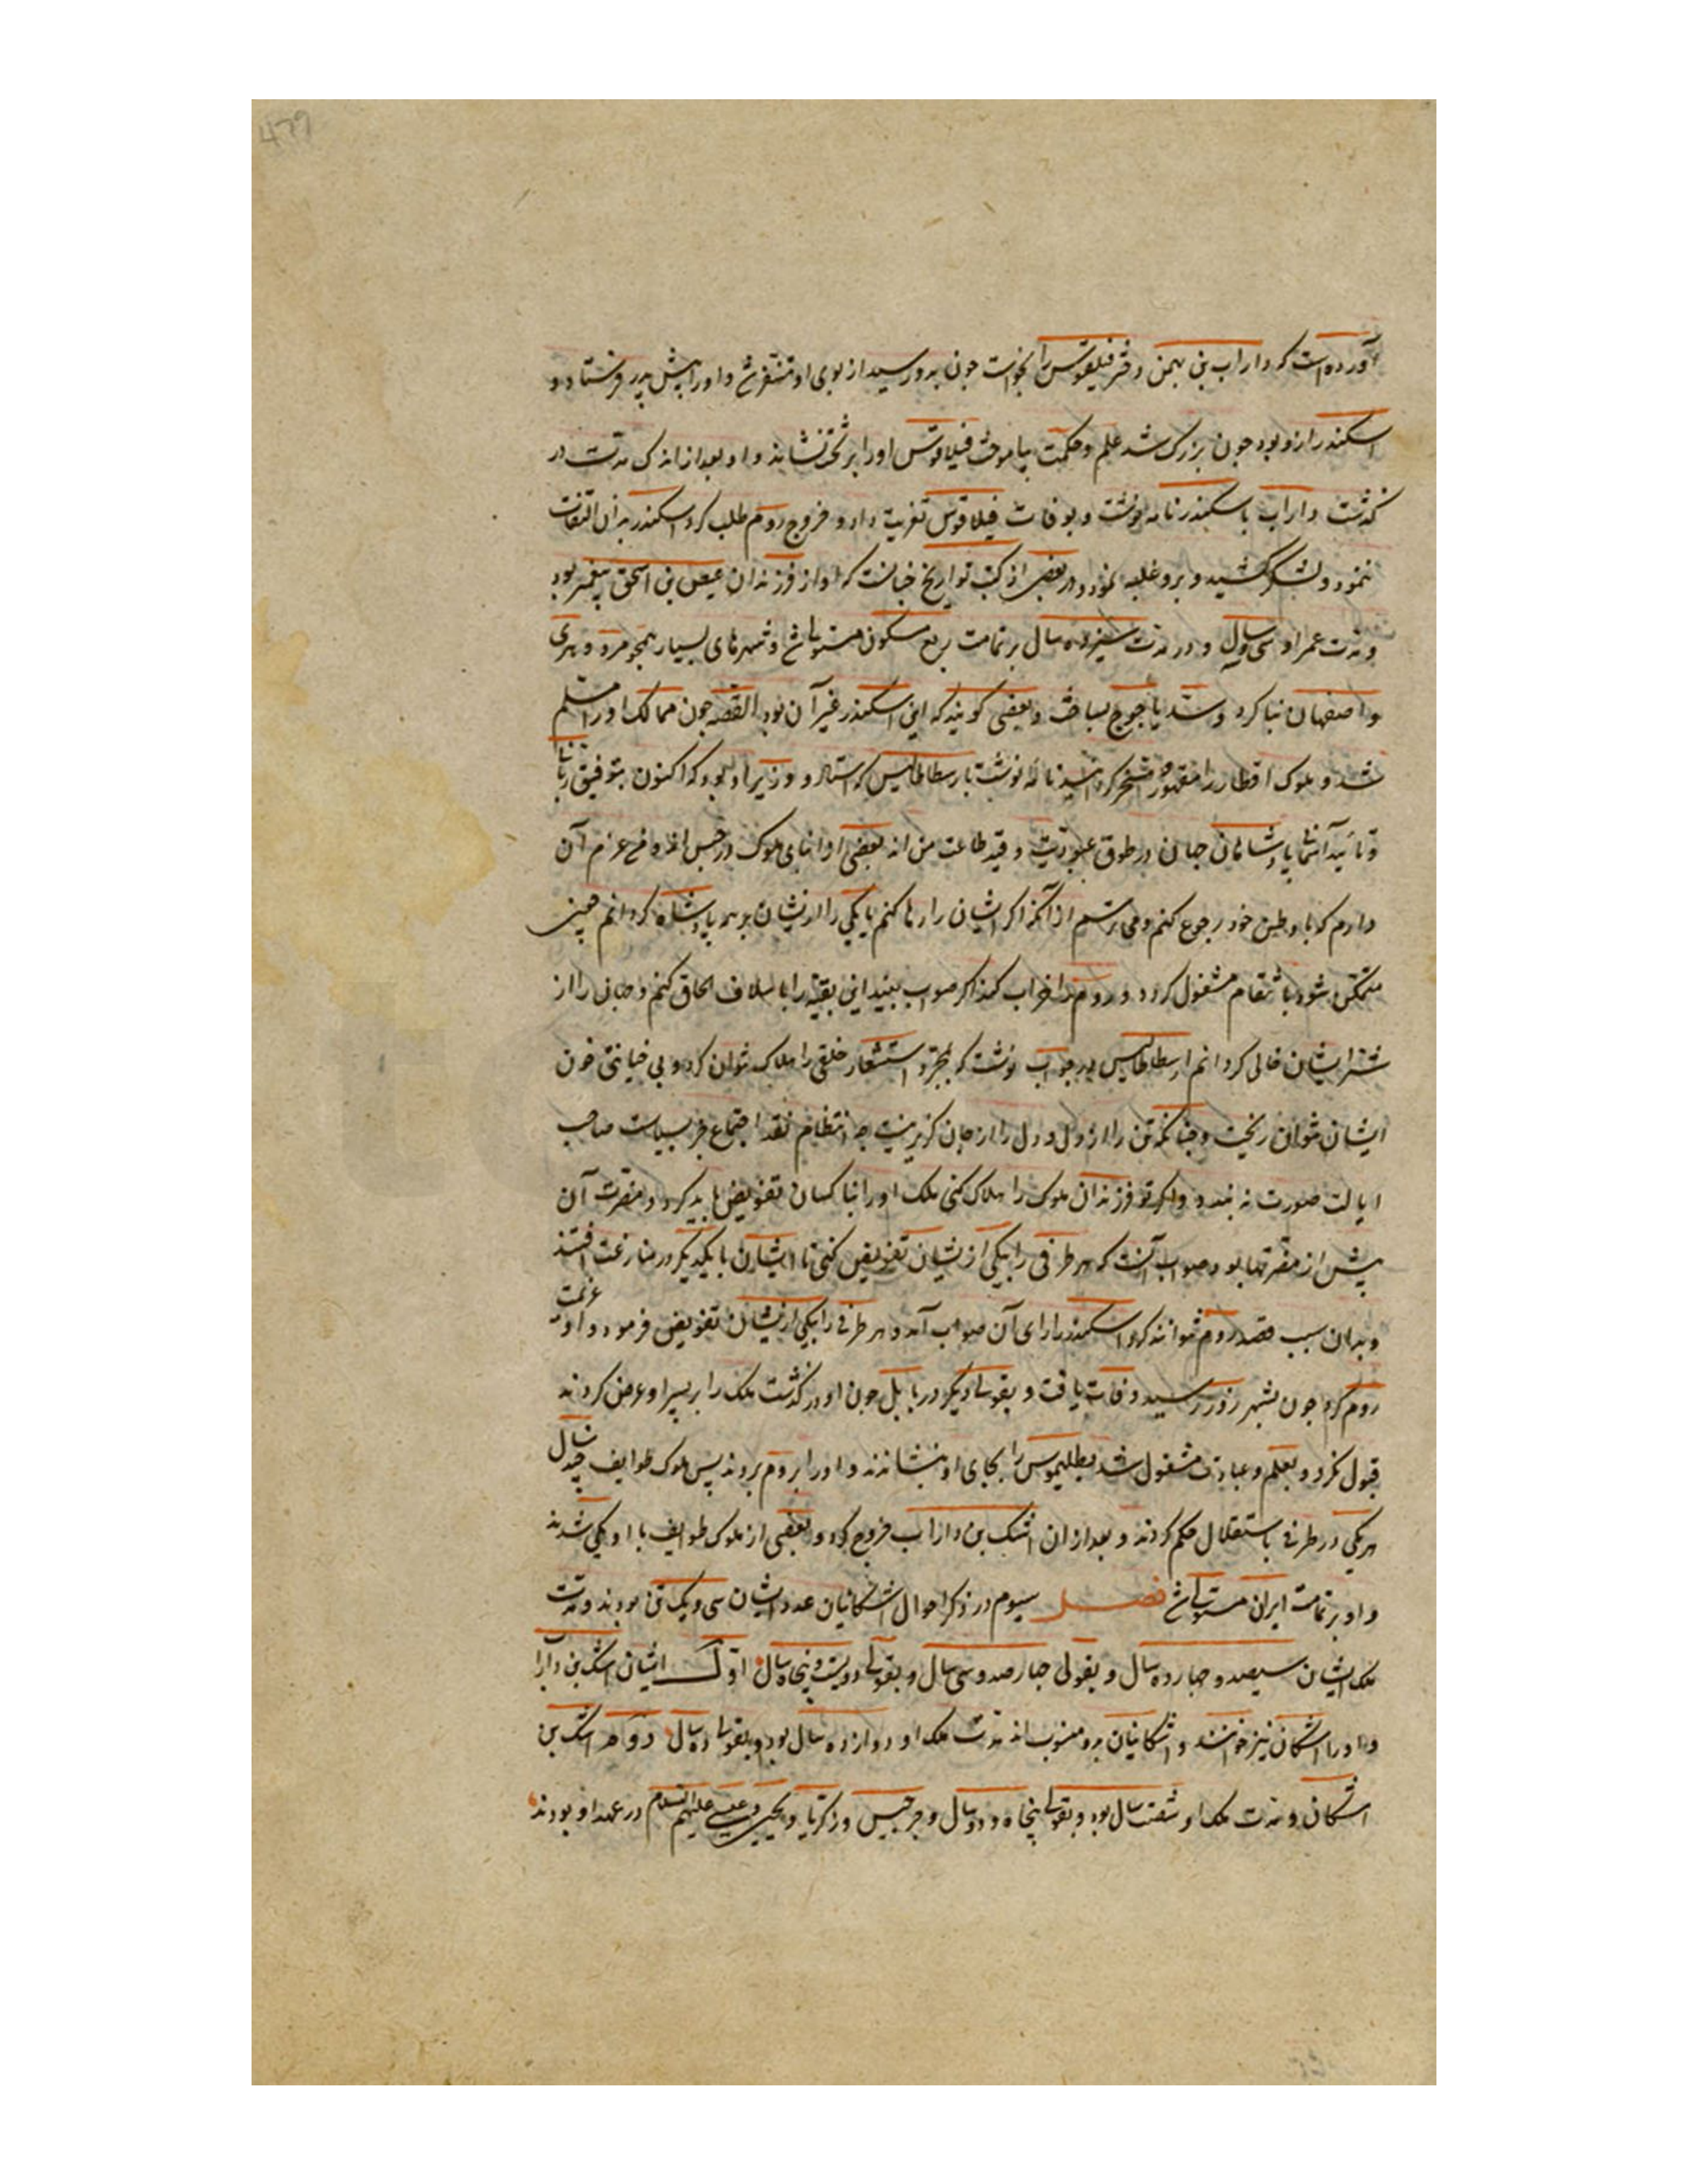 آورده است که داراب بن بهمن دختر فیلقوس را بخواست چون بدو رسید از بوی او متنفر شد و او را پیش پدر فرستاد و
اسکندر ازو بود چون بزرک شد علم و حکمت بیاموخت فیلاقوس او را بر تخت نشاند و او بعد از اندک مدت در
کذشت داراب باسکندر نامه نوشت و بوفات فیلاقوس تعزیت داد و خروج روم طلب کرد اسکندر بدان التفات
ننمود و لشکر کشید و برو غلبه نمود و در بعضی از کتب تواریخ چنانست که او از فرزندان عیص بن اسحق پیغمبر بود
و مدت عمر او سی و سال و در مدت سیزده سال بر تمامت ربع مسکون مستولی شد و شهرهای بسیار همجو مرو و هری
و اصفهان بنا کرد و سد یاجوج بساخت و بعضی کویند که این اسکندر غیر آن بود القصه چون ممالک او را مسلم
شد و ملوک اقطار را مقهور و مسخر کردانید نامه نوشت بارسطاطالیس که استاد و وزیر او بود که اکنون بتوفیق ربانی
و تایید آسمانی پادشاهان جهان در طوق عبودیت و قید طاعت من اند بعضی از ابنای ملوک در حبس اند و من عزم آن
دارم که با وطن خود رجوع کنم و می ترسم از آنکه اکر ایشان را رها کنم یا یکی را از یشان بر همه پادشاه کردانم همین
متمکن شود بانتقام مشغول کردد و روم را خراب کند اکر صواب بیند این بقیه را با اسلاف الحاق کنم و جهان را از
شر ایشان خالی کردانم ارسطاطالیس در جواب نوشت که بمجرد استشعار خلقی را هلاک نتوان کرد و بی خیانتی خون
ایشان نتوان ریخت و چنانکه تن را از دل و دل را از جان کزیر نیست انتظام عقد اجتماع جز بسیاست صاحب
ایالت صورت نه بندد و اکر تو فرزندان ملوک را هلاک کنی ملک او را بنا کسان تفویض باید کرد و مضرت آن
بیش از مضرت بود و صواب آنست که هر طرفی را بیکی از یشان تفویض کنی تا ایشان با یکدیکر در منازعت افتند
و بدان سبب قصد روم نتوانند کرد اسکندر را رای آن صواب آمد و هر طرفی را بیکی از یشان تفویض فرمود و او عزیمت
روم کرد چون بشهر زور رسید وفات یافت و بقولی دیکر در بابل چون او در کذشت ملک را بر پسر او عرض کردند
قبول نکرد و بعلم و عبادت مشغول شد بطلیموس را بجای او بنشاندند و او را بروم بردند پس ملوک طوایف چند سال
هر یکی در طرفی باستقلال حکم کردند و بعد از ان اشک بن داراب خروج کرد و بعضی از ملوک طوایف با او یکی شدند
و او بر تمامت ایران مستولی شد فصل سیوم در ذکر احوال اشکانیان عدد ایشان سی و یک تن بودند و مدت
ملک ایشان سیصد و چهارده سال و بقولی چهارصد و سی سال و بقولی دویست و پنجاه سال اول ایشان اشک بن دارا
و او را اشکان نیز خوانند و اشکانیان بدو منسوب اند مدت ملک او دوازده سال بود و بقولی ده سال دوم اشک بن
اشکان و مدت ملک او شصت سال بود و بقولی پنجاه و دو سال و جرجیس و زکریا و یحیی و عیسی علیهم السلام در عهد او بودند